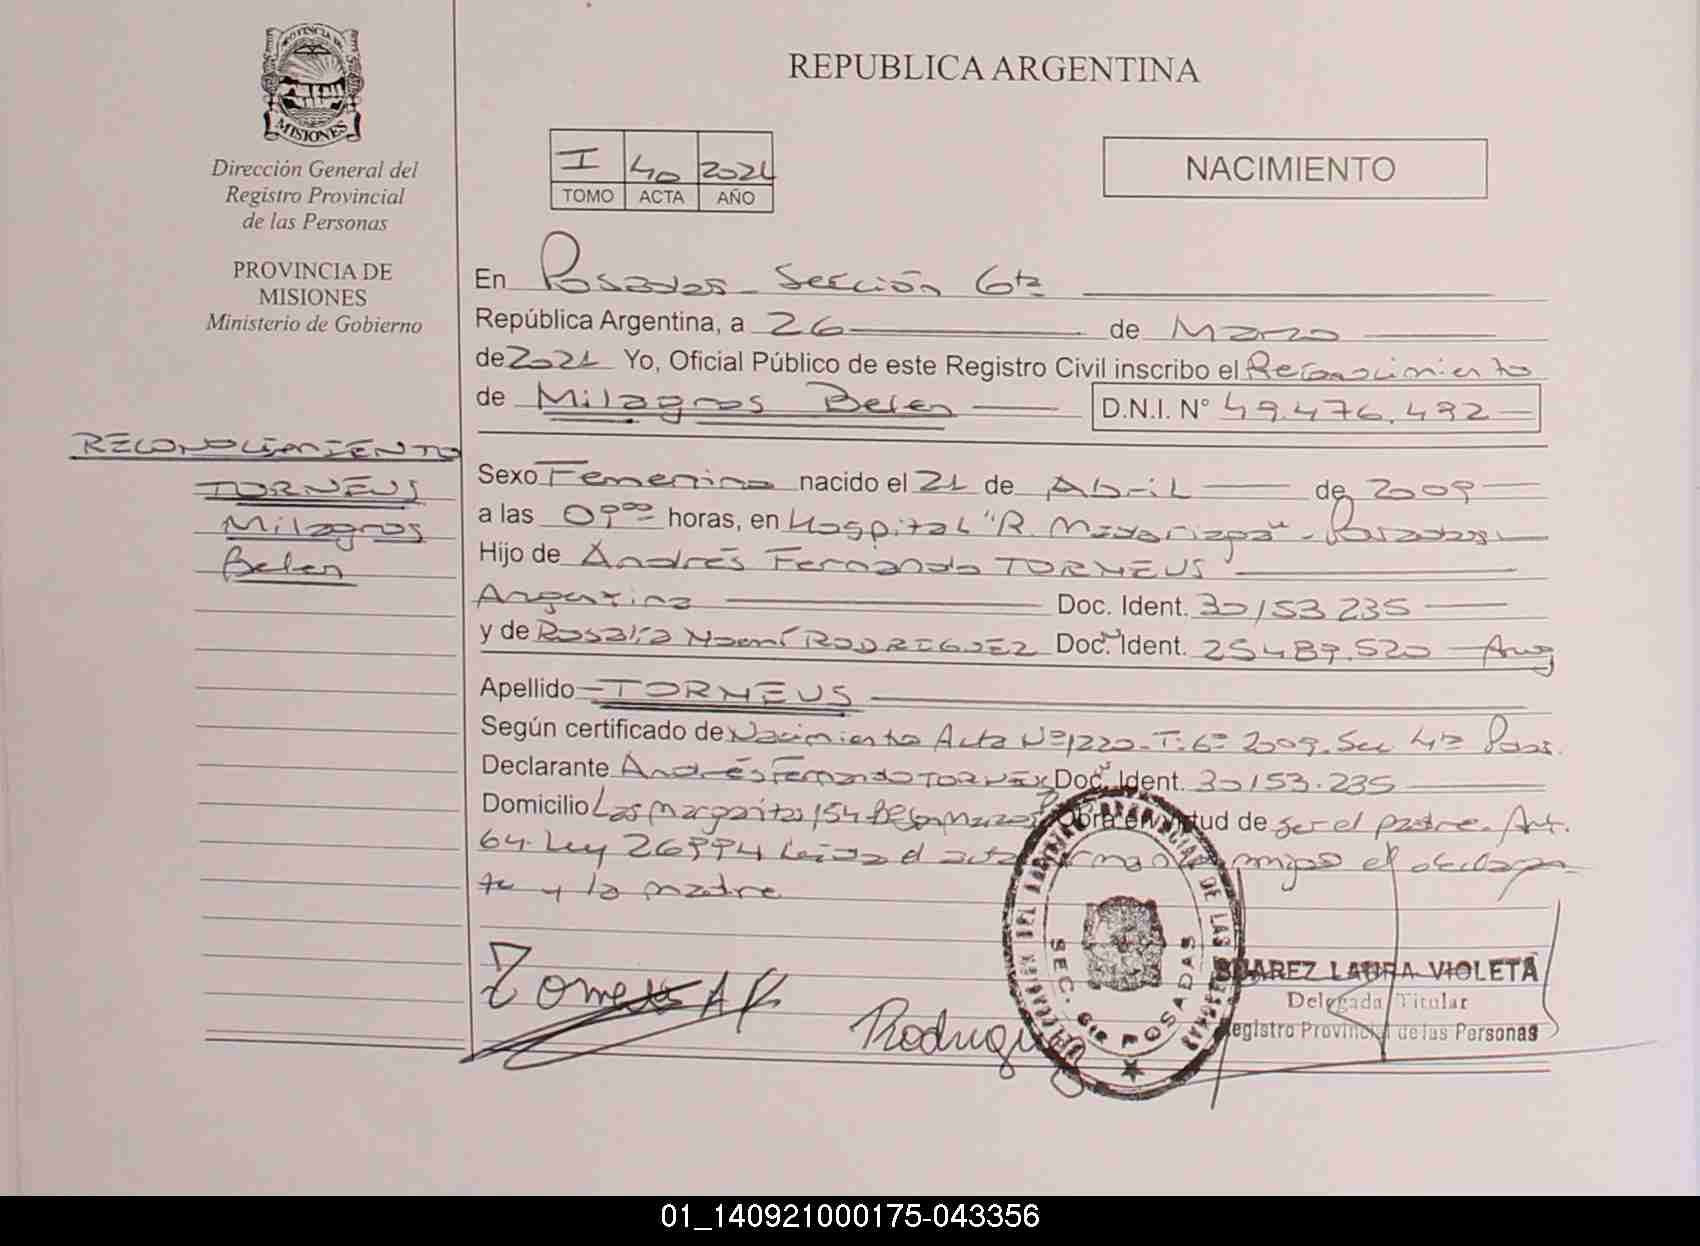 PROVINCIA DE
MISIONES
Dirección General del
Registro Provincial
de las Personas
PROVINCIA DE
MISIONES
Ministerio de Gobierno
RECONOCIMIENTO
TORNEUS
Milagros
Belen
REPUBLICA ARGENTINA
I 40 2021
TOMO ACTA AÑO
NACIMIENTO
En Posadas - Sección 6ta
República Argentina, a 26 de Marzo
de 2021 Yo, Oficial Público de este Registro Civil inscribo el Reconocimiento
de Milagros Belen D.N.I. N° 49.476.492
Sexo Femenino nacido el 21 de Abril de 2009
a las 09⁰⁰ horas, en Hospital "R. Madariaga" - Posadas
Hijo de Andrés Fernando TORNEUS
Argentina Doc. Ident. 30153235
y de Rosalía Noemí RODRIGUEZ Doc. Ident. 25489.520 - Arg
Apellido TORNEUS
Según certificado de Nacimiento Acta Nº 1220 - T: 6º 2009. Sec 4ta Posas.
Declarante Andrés Fernando TORNEUS Doc. Ident. 30153.235
Domicilio Las Margaritas 154 Obra en virtud de ser el padre. Art.
64. Ley 26994 Leída el acta firma conmigo el declaran-
te y la madre
Torneus A F
Rodriguez
DIRECCION DEL REGISTRO PROVINCIAL DE LAS PERSONAS
SEC. 6ta POSADAS
SUAREZ LAURA VIOLETA
Delegada Titular
Registro Provincial de las Personas
01_140921000175-043356